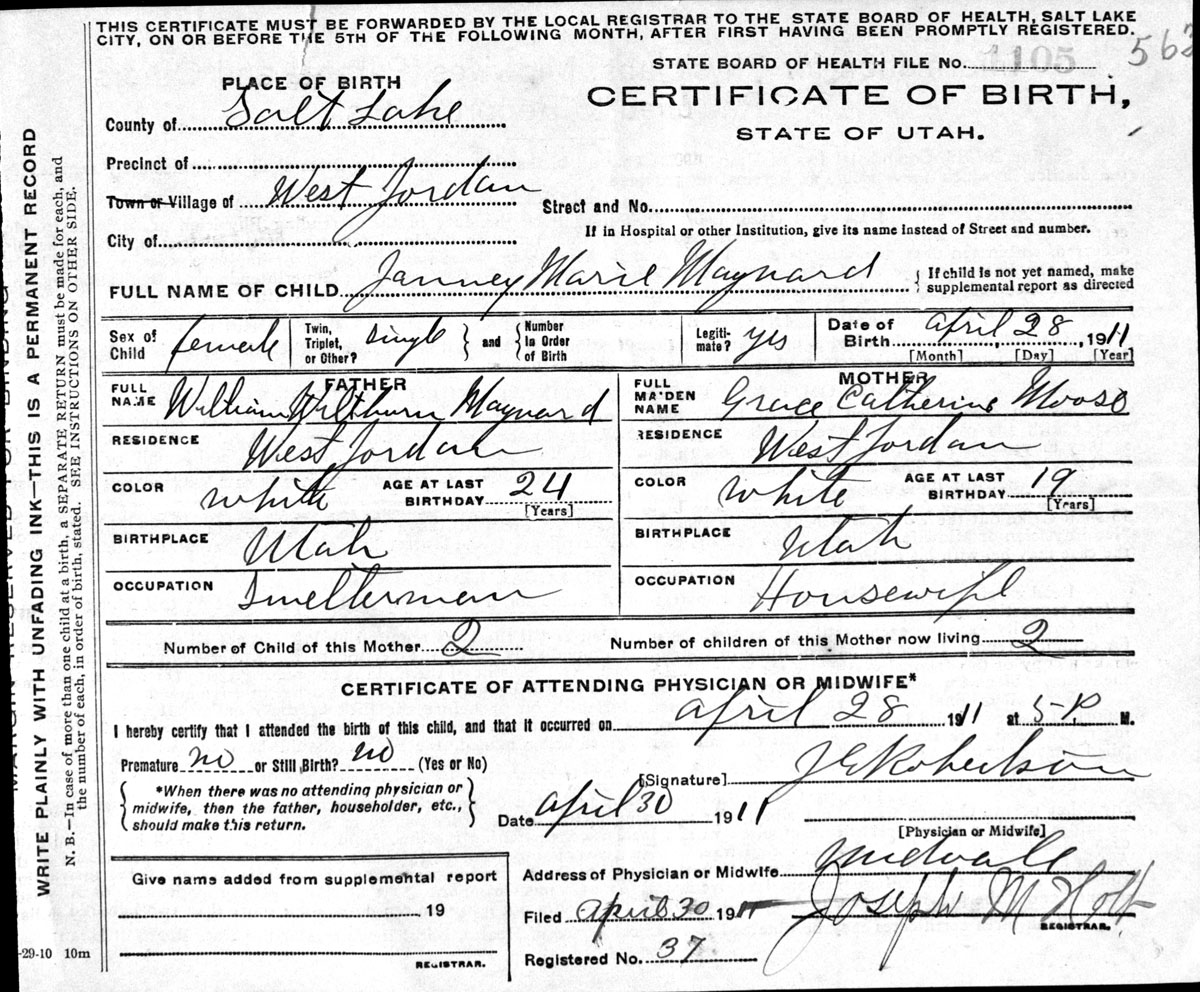 THIS CERTIFICATE MUST BE FORWARDED BY THE LOCAL REGISTRAR TO THE STATE BOARD OF HEALTH, SALT LAKE
CITY, ON OR BEFORE THE 5TH OF THE FOLLOWING MONTH, AFTER FIRST HAVING BEEN PROMPTLY REGISTERED.
STATE BOARD OF HEALTH FILE No. 1105 562
PLACE OF BIRTH
CERTIFICATE OF BIRTH,
STATE OF UTAH.
County of Salt Lake
Precinct of
Town or Village of West Jordan
Street and No.
City of
If in Hospital or other Institution, give its name instead of Street and number.
FULL NAME OF CHILD Janney Marie Maynard { If child is not yet named, make
supplemental report as directed
Sex of Child female Twin, Triplet, or Other? single } and { Number in Order of Birth Legiti-mate? yes Date of Birth April 28, 1911
[Month] [Day] [Year]
FATHER MOTHER
FULL NAME William Wiltburn Maynard FULL MAIDEN NAME Grace Catherine Moose
RESIDENCE West Jordan RESIDENCE West Jordan
COLOR white AGE AT LAST BIRTHDAY 24 [Years] COLOR white AGE AT LAST BIRTHDAY 19 [Years]
BIRTHPLACE Utah BIRTHPLACE Utah
OCCUPATION Smelterman OCCUPATION Housewife
Number of Child of this Mother 2 Number of children of this Mother now living 2
CERTIFICATE OF ATTENDING PHYSICIAN OR MIDWIFE*
I hereby certify that I attended the birth of this child, and that it occurred on April 28 1911 at 5 P. M.
Premature no or Still Birth? no (Yes or No)
[Signature] J E Robertson
{ *When there was no attending physician or
midwife, then the father, householder, etc.,
should make this return. }
Date April 30 1911
[Physician or Midwife]
Address of Physician or Midwife Midvale
Give name added from supplemental report
19
Filed April 30 1911 Joseph M Holt
REGISTRAR.
Registered No. 37
REGISTRAR.
-29-10 10m
WRITE PLAINLY WITH UNFADING INK—THIS IS A PERMANENT RECORD
N. B.—In case of more than one child at a birth, a SEPARATE RETURN must be made for each, and
the number of each, in order of birth, stated. SEE INSTRUCTIONS ON OTHER SIDE.